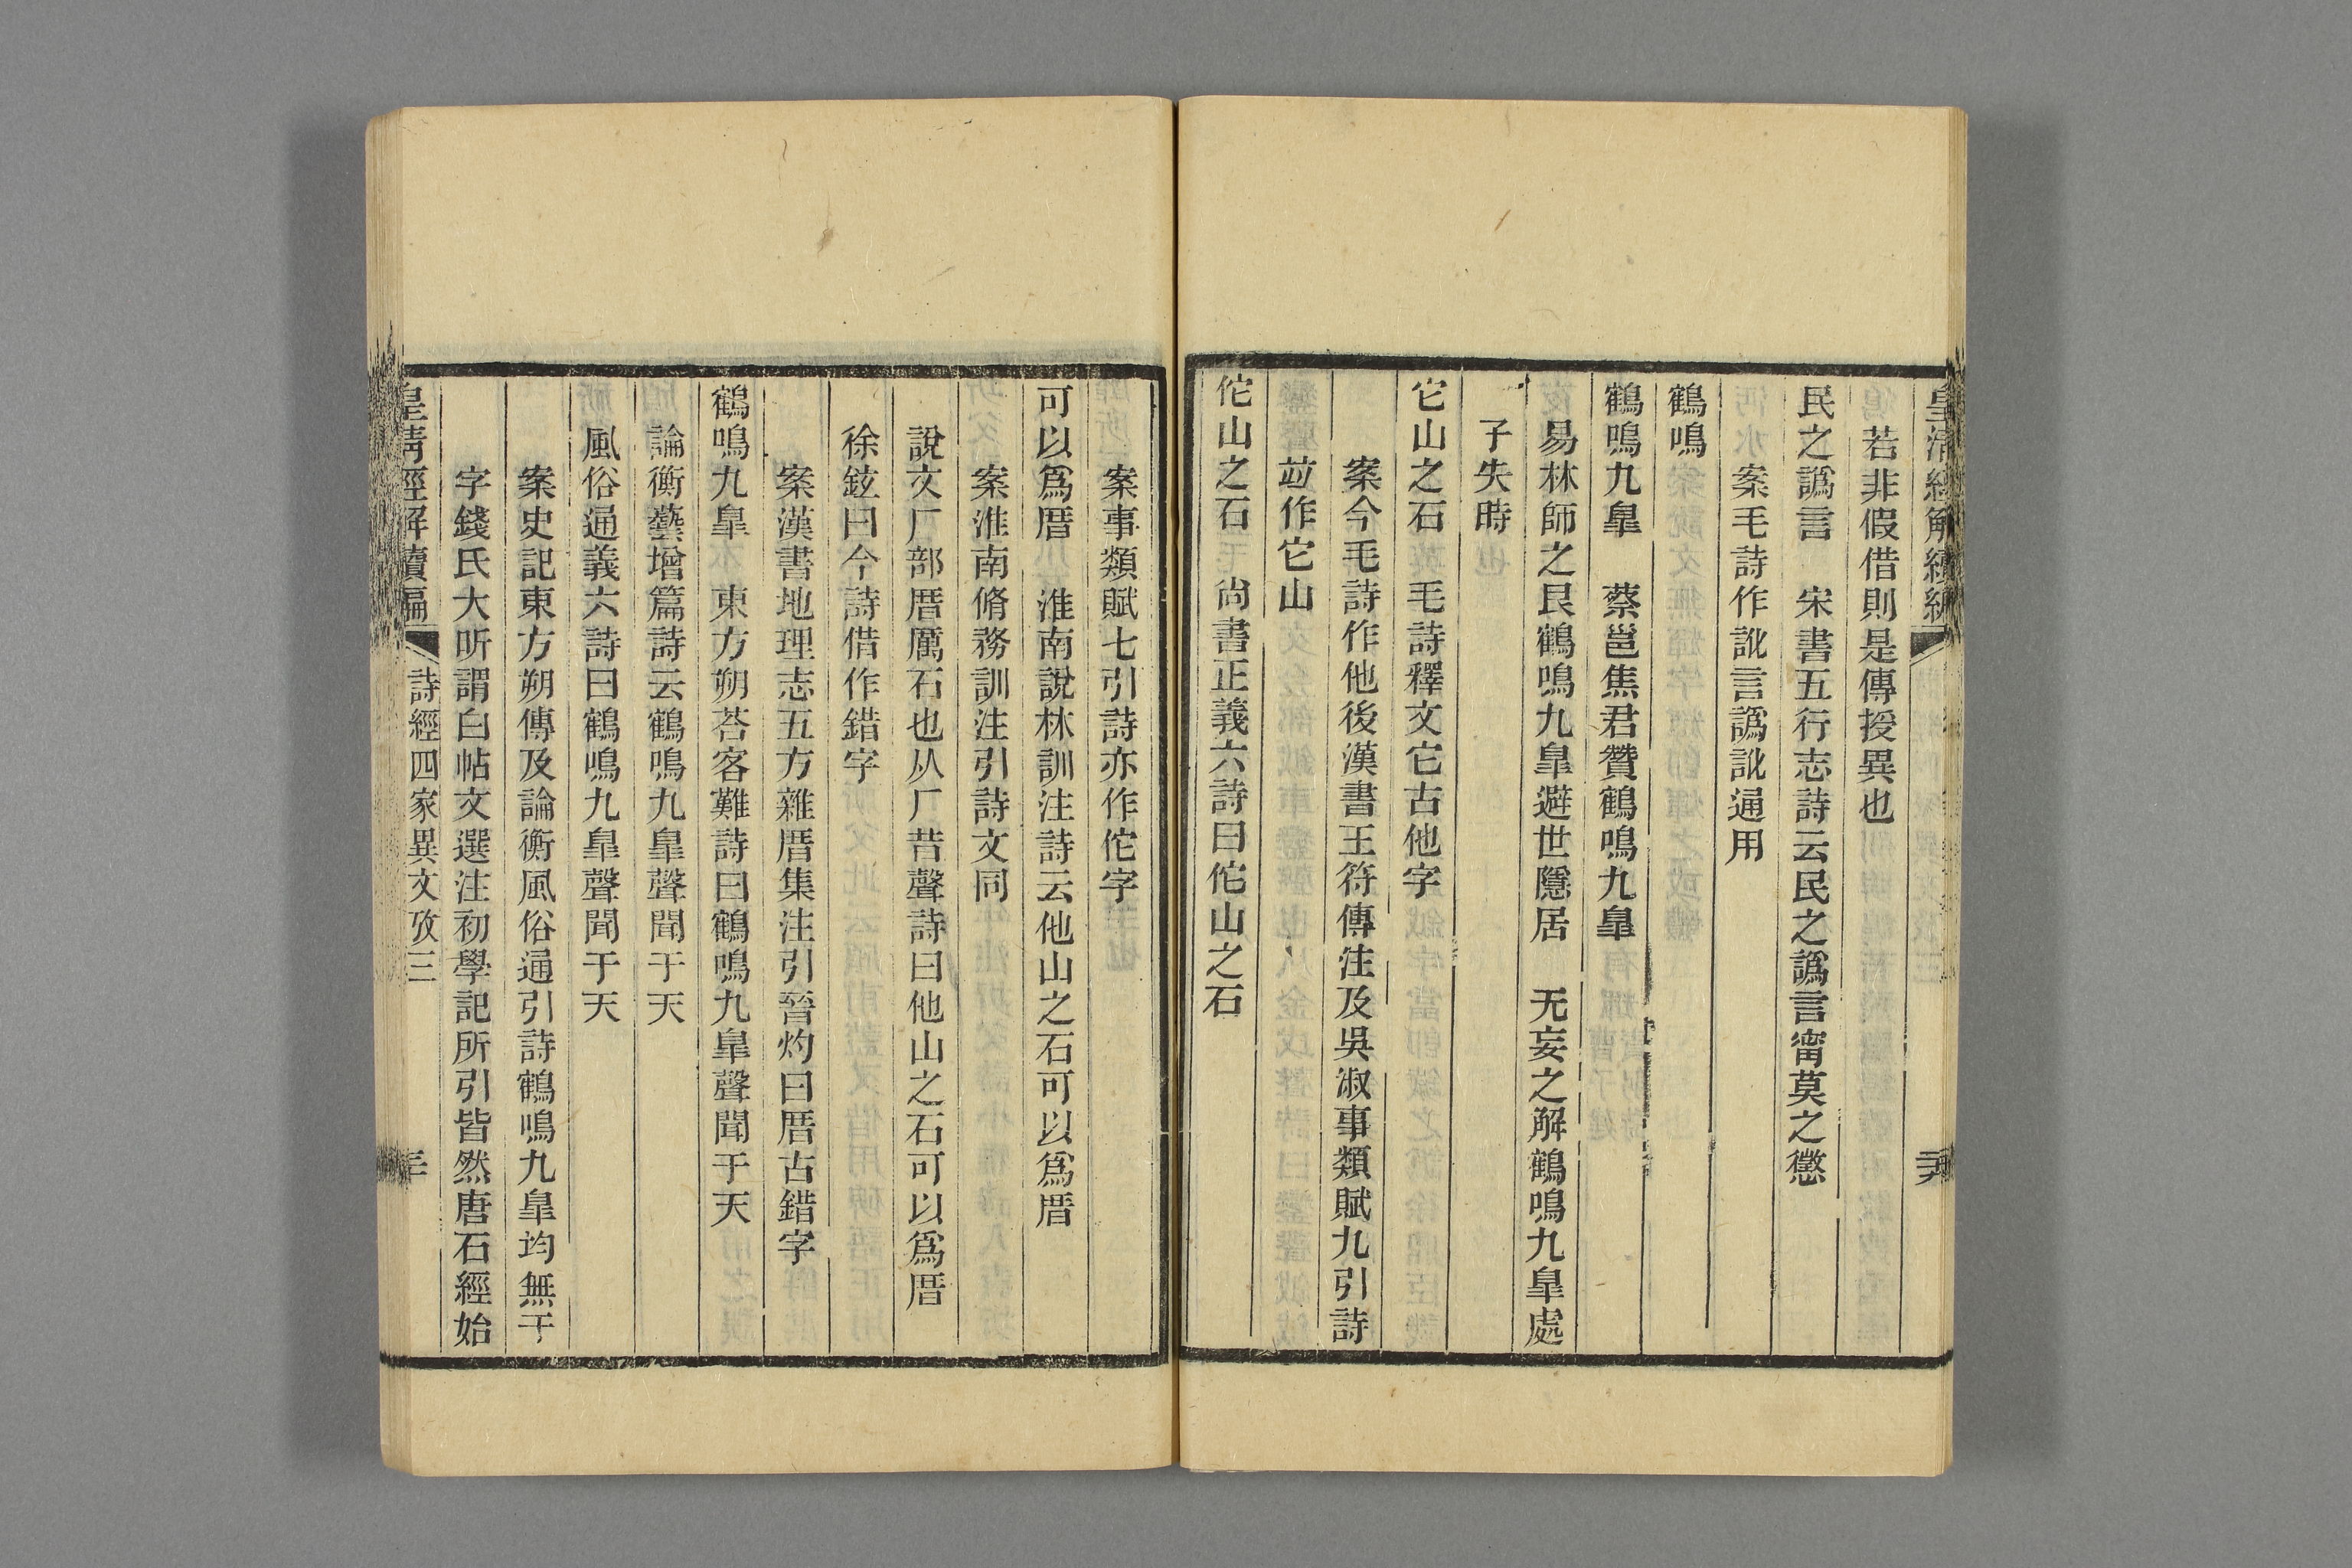 皇清經解續編
若非假借則是傳授異也
民之譌言　宋書五行志詩云民之譌言甯莫之懲
案毛詩作訛言譌訛通用
鶴鳴
鶴鳴九臯　蔡邕焦君贊鶴鳴九臯
易林師之艮鶴鳴九臯避世隱居　无妄之解鶴鳴九臯處
子失時
它山之石　毛詩釋文它古他字
案今毛詩作他後漢書王符傳注及吳淑事類賦九引詩
竝作它山
佗山之石　尙書正義六詩曰佗山之石
案事類賦七引詩亦作佗字
可以爲厝　淮南說林訓注詩云他山之石可以爲厝
案淮南脩務訓注引詩文同
說文厂部厝厲石也从厂昔聲詩曰他山之石可以爲厝
徐鉉曰今詩借作錯字
案漢書地理志五方雜厝集注引晉灼曰厝古錯字
鶴鳴九臯　東方朔荅客難詩曰鶴鳴九臯聲聞于天
論衡藝增篇詩云鶴鳴九臯聲聞于天
風俗通義六詩曰鶴鳴九臯聲聞于天
案史記東方朔傳及論衡風俗通引詩鶴鳴九臯均無于
字錢氏大昕謂白帖文選注初學記所引皆然唐石經始
皇清經解續編　詩經四家異文攷三